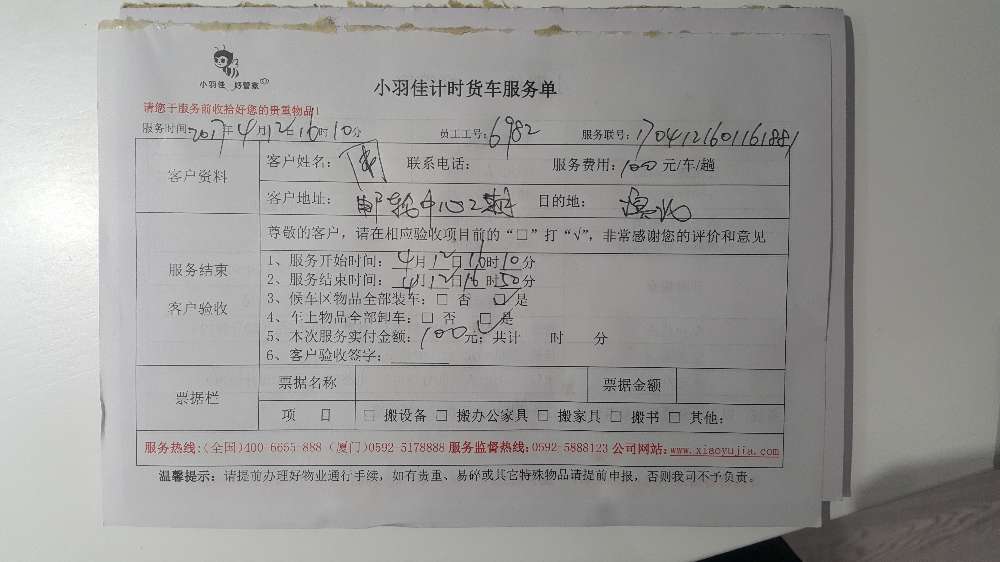 小羽佳 好管家
小羽佳计时货车服务单
请您于服务前收拾好您的贵重物品!
服务时间:2017年4月12日16时10分 员工工号:6982 服务联号:1704121601161881
客户资料
客户姓名: 联系电话: 服务费用:100元/车/趟
客户地址:邮轮中心2期 目的地:
服务结束
客户验收
尊敬的客户,请在相应验收项目前的“□”打“√”,非常感谢您的评价和意见
1、服务开始时间:4月12日16时10分
2、服务结束时间:4月12日16时50分
3、候车区物品全部装车:□ 否 ☑是
4、车上物品全部卸车:□ 否 ☑是
5、本次服务实付金额:100元;共计 时 分
6、客户验收签字:
票据栏
票据名称 票据金额
项 目 □ 搬设备 □ 搬办公家具 □ 搬家具 □ 搬书 □ 其他:
服务热线:(全国)400 6655 888 (厦门)0592 5178888 服务监督热线:0592 5888123 公司网站:www.xiaoyujia.com
温馨提示:请提前办理好物业通行手续,如有贵重、易碎或其它特殊物品请提前申报,否则我司不予负责。